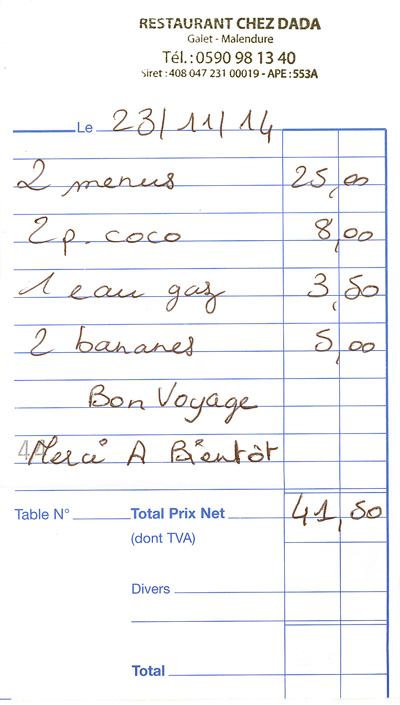 RESTAURANT CHEZ DADA
Galet - Malendure
Tél. : 0590 98 13 40
Siret : 408 047 231 00019 - APE : 553A
Le 23/11/14
2 menus 25,00
2 p. coco 8,00
1 eau gaz 3,50
2 bananes 5,00
Bon Voyage
Merci A Bientôt
Table N° Total Prix Net 41,50
(dont TVA)
Divers
Total